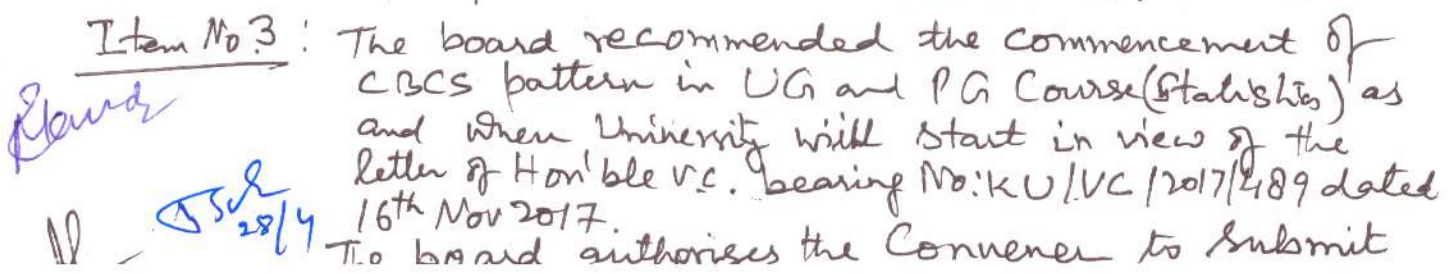 Item No.3 : The board recommended the commencement of
CBCS pattern in UG and PG Course (Statistics) as
and when University will start in view of the
letter of Hon'ble V.C. bearing No: KU/VC/2017/489 dated
16th Nov 2017.
28/4
The board authorises the Convener to submit